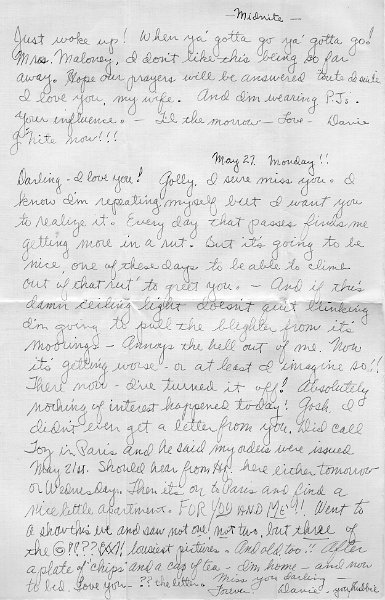 — Midnite —
Just woke up! When ya' gotta go ya' gotta go!
Mrs. Maloney, I don't like this being so far
away. Hope our prayers will be answered
I love you, my wife. And I'm wearing P.J.s.
Your influence. — Til the morrow — Love — Davie
G'Nite now!!!
May 27. Monday!!
Darling - I love you! Golly, I sure miss you. I
know I'm repeating myself but I want you
to realize it. Every day that passes finds me
getting more in a rut. But it's going to be
nice, one of these days to be able to climb
out of that 'rut' to greet you. — And if this
damn ceiling light doesn't quit blinking
I'm going to pull the blighter from its
moorings — Annoys the hell out of me. Now
it's getting worse - or at least I imagine so!!
There now - I've turned it off! Absolutely
nothing of interest happened today! Gosh, I
didn't even get a letter from you. Did call
Joy in Paris and he said my orders were issued
May 21st. Should hear from Hq. here either tomorrow
or Wednesday. Then it's on to Paris and find a
nice little apartment. FOR YOU AND ME!! Went to
a show this eve and saw not one, not two, but three of
the lousiest pictures. And old, too!! After
a plate of 'chips' and a cup of tea - I'm home - and now
to bed. Love you - ?? the letters. Miss you darling —
Forever Davie - your hubbie